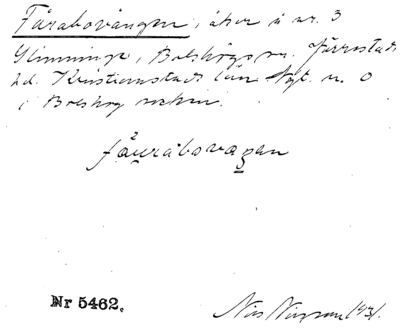 Fårabovången, åker å nr. 3
Glimminge, Bolshögs sn. Järrestads
hd. Kristianstads län
i Bolshög socken.
fåurabovaŋan
Nr 5462.
Nils 1931.